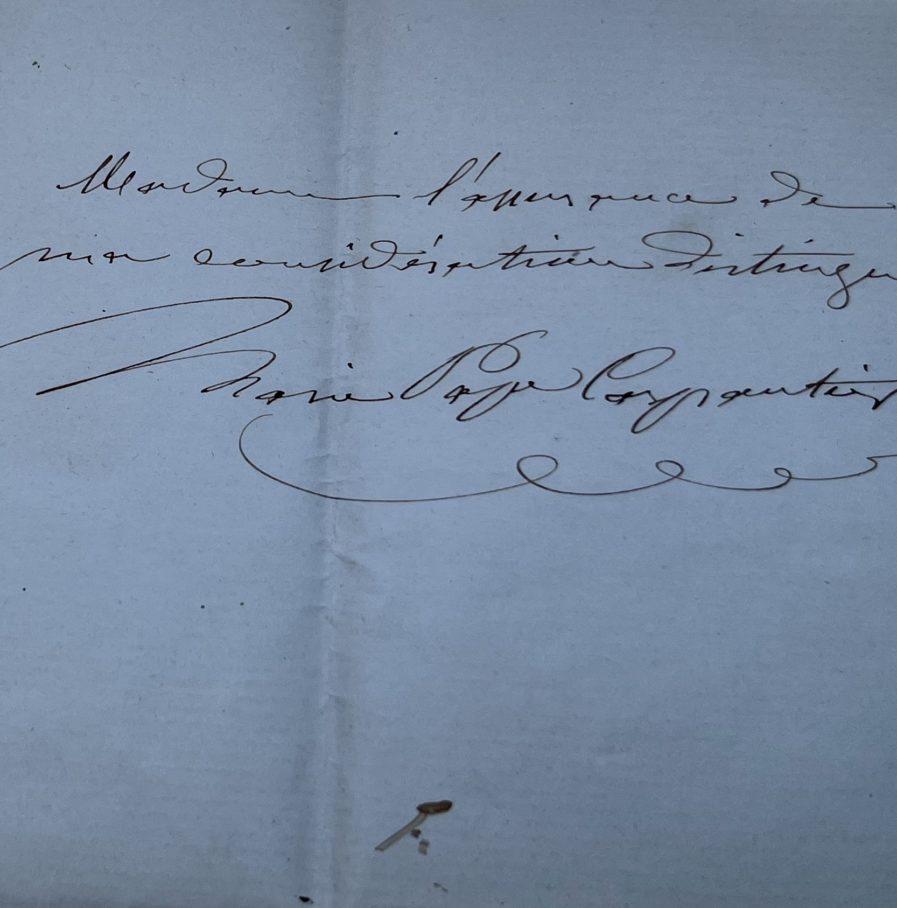 Madame l'assurance de
ma considération distingu
Marie Pape Carpantier